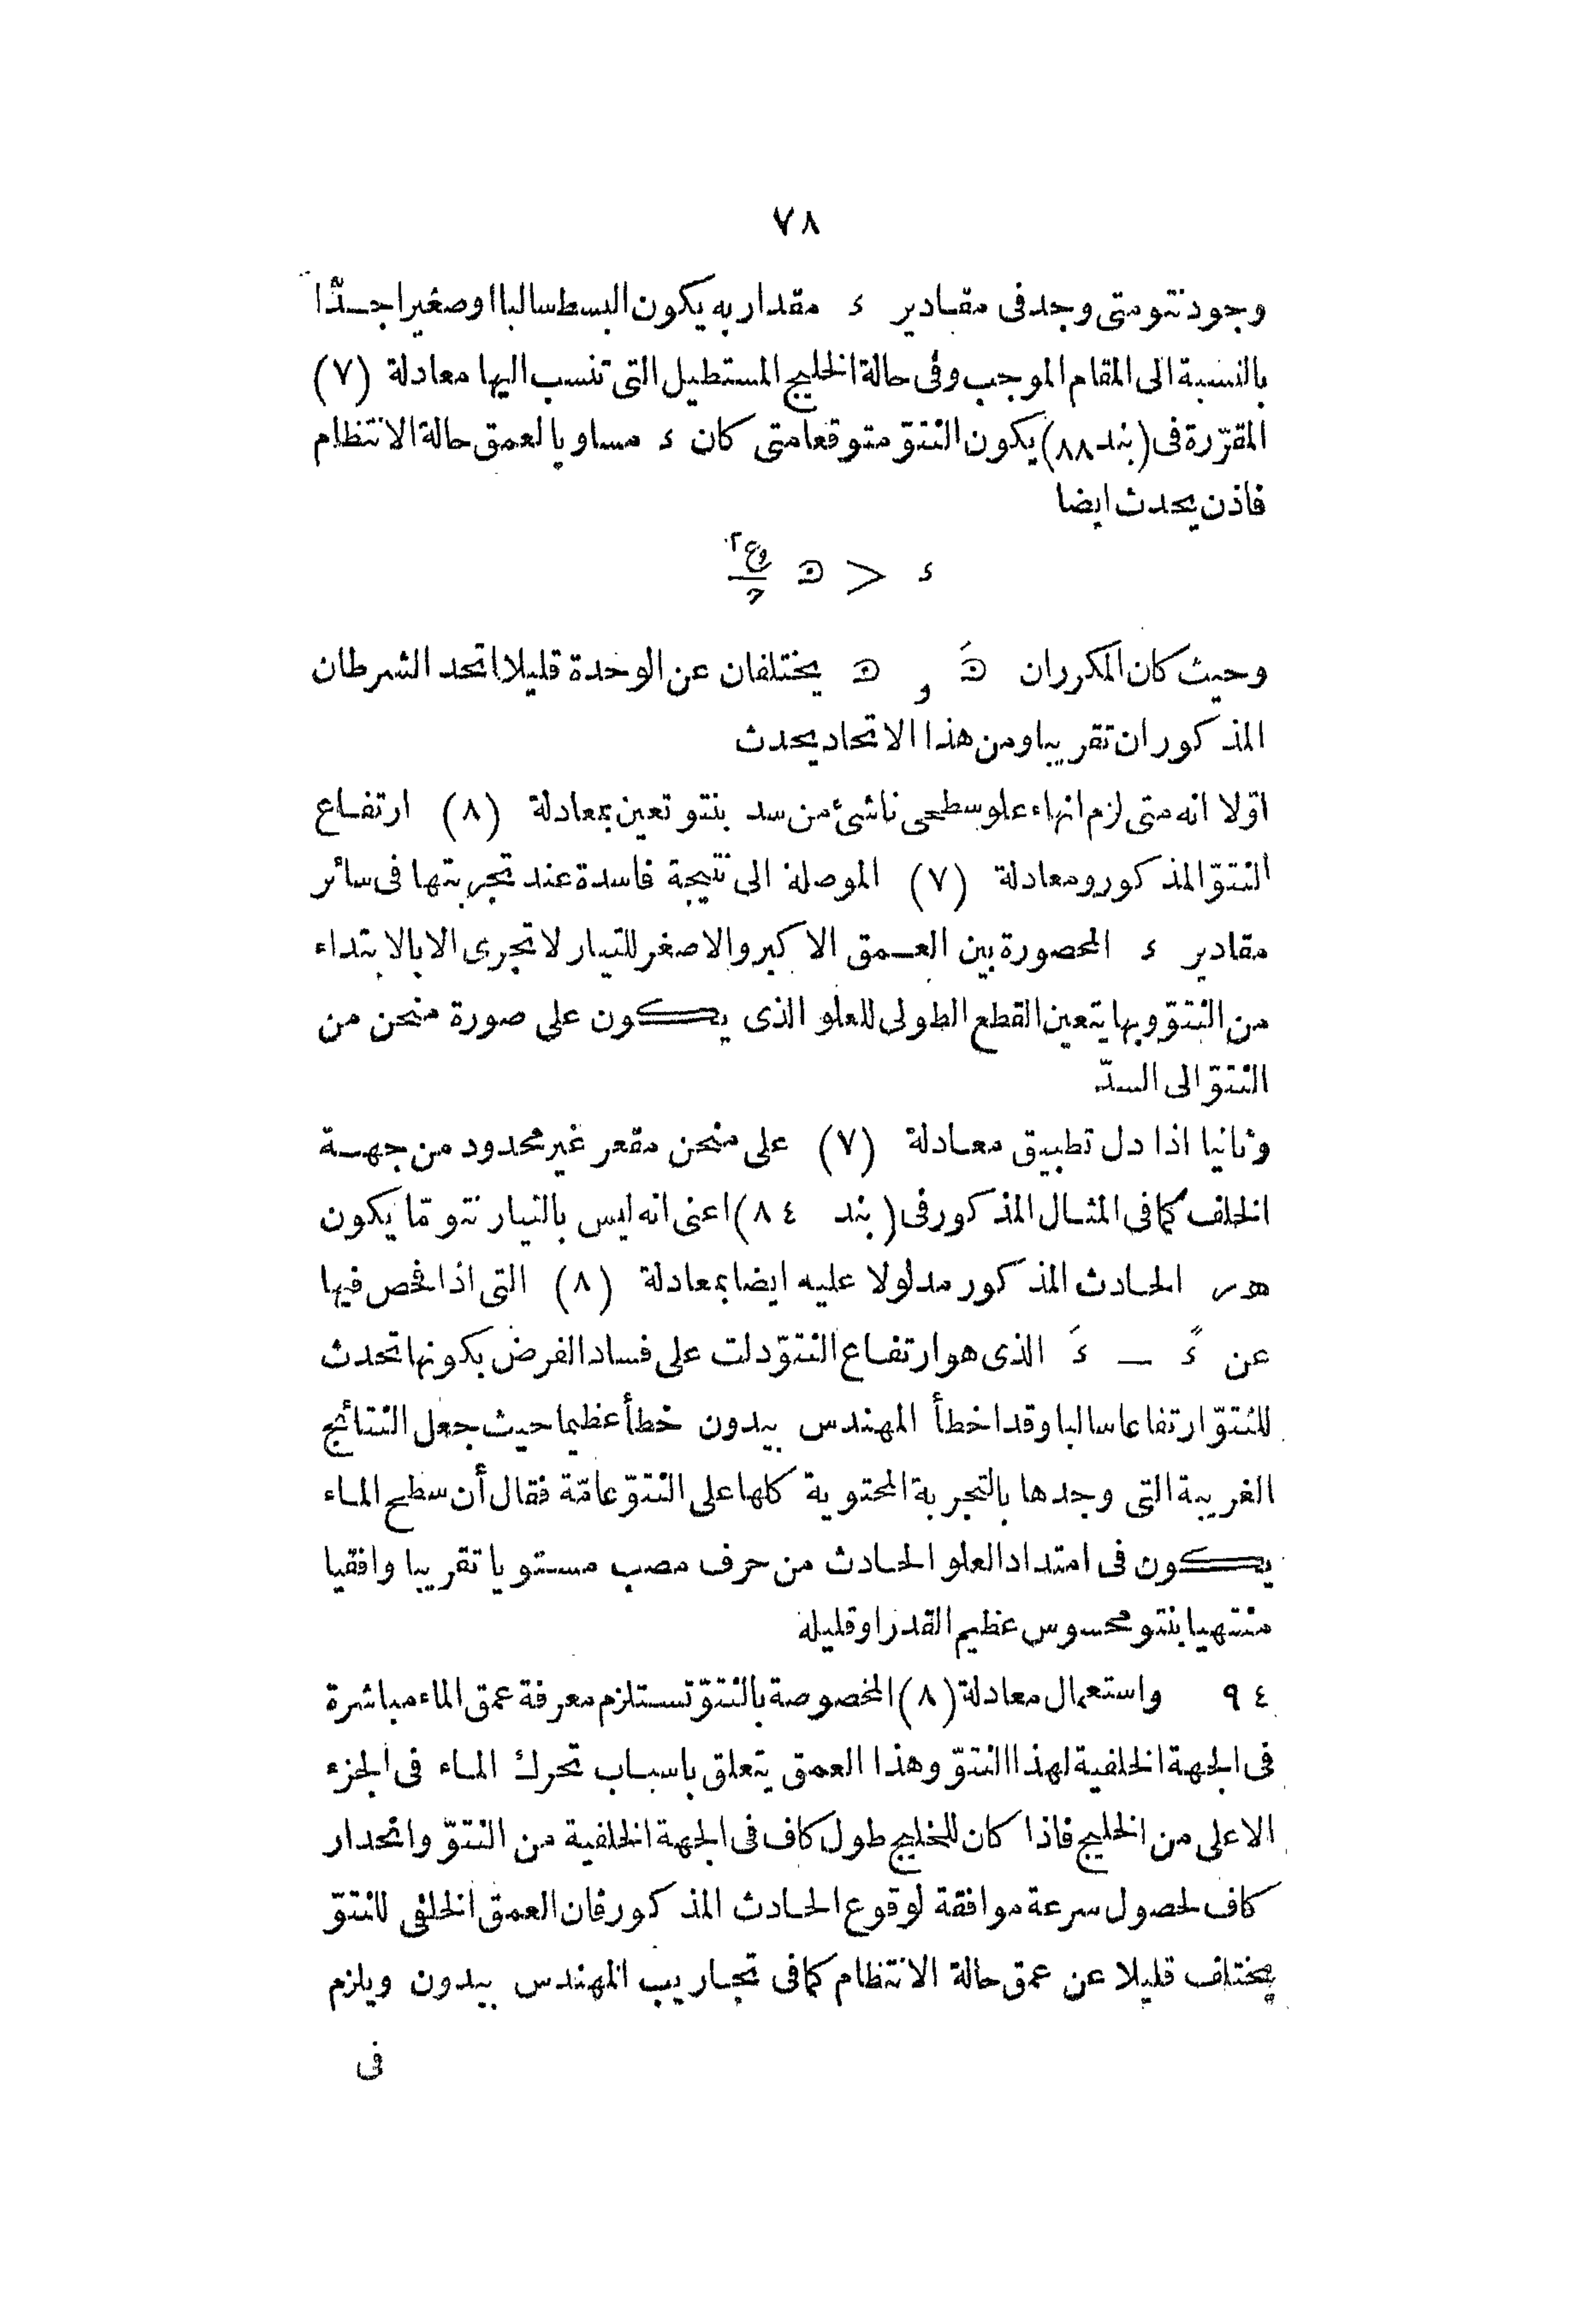 ٧٨
وجود نتو متى وجد فى مقادير ء مقدار به يكون البسط سالبا او صغيرا جدّا
بالنسبة الى المقام الموجب وفى حالة الخليج المستطيل التى تنسب اليها معادلة (٧)
المقرّرة فى (بند ٨٨) يكون النتوّ متوقعا متى كان ء مساويا لعمق حالة الانتظام
فاذن يحدث ايضا
وحيث كان المكرران و يختلفان عن الوحدة قليلا اتحد الشرطان
المذكوران تقريبا ومن هذا الاتحاد يحدث
اوّلا انه متى لزم انهاء علو سطحى ناشئ من سد بنتو تعين بمعادلة (٨) ارتفاع
النتوّ المذكور ومعادلة (٧) الموصلة الى نتيجة فاسدة عند تجربتها فى سائر
مقادير ء المحصورة بين العمق الاكبر والاصغر للتيار لا تجرى الا بالابتداء
من النتوّ وبها يتعين القطع الطولى للعلو الذى يكون على صورة منحن من
النتوّ الى السدّ
وثانيا اذا دل تطبيق معادلة (٧) على منحن مقعر غير محدود من جهة
الخلف كما فى المثال المذكور فى (بند ٨٤) اعنى انه ليس بالتيار نتو مّا يكون
الحادث المذكور مدلولا عليه ايضا بمعادلة (٨) التى اذا فحص فيها
عن ءً — ءَ الذى هو ارتفاع النتوّ دلت على فساد الفرض بكونها تحدث
للنتوّ ارتفاعا سالبا وقد اخطأ المهندس بيدون خطأ عظيما حيث جعل النتائج
الغريبة التى وجدها بالتجربة المحتوية كلها على النتوّ عامّة فقال أن سطح الماء
يكون فى امتداد العلو الحادث من حرف مصب مستويا تقريبا وافقيا
منتهيا بنتو محسوس عظيم القدر او قليله
٩٤ واستعمال معادلة (٨) المخصوصة بالنتوّ تستلزم معرفة عمق الماء مباشرة
فى الجهة الخلفية لهذا النتوّ وهذا العمق يتعلق باسباب تحرك الماء فى الجزء
الاعلى من الخليج فاذا كان للخليج طول كاف فى الجهة الخلفية من النتوّ وانحدار
كاف لحصول سرعة موافقة لوقوع الحادث المذكور فان العمق الخلفى للنتوّ
يختلف قليلا عن عمق حالة الانتظام كما فى تجاريب المهندس بيدون ويلزم
فى